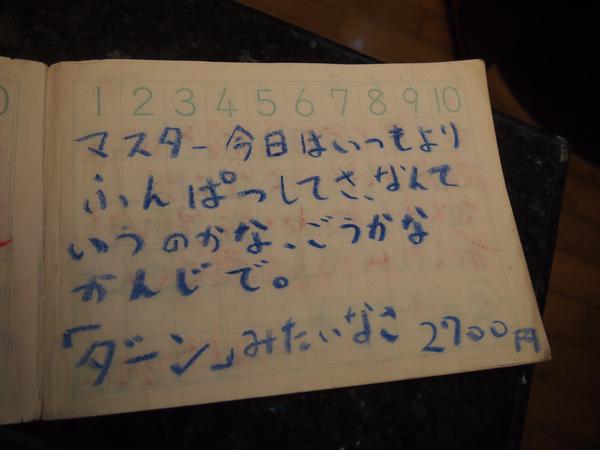 1 2 3 4 5 6 7 8 9 10
マスター今日はいつもより
ふんぱつしてさ、なんて
いうのかな、ごうかな
かんじで。
「ダーン」みたいなさ 2700円